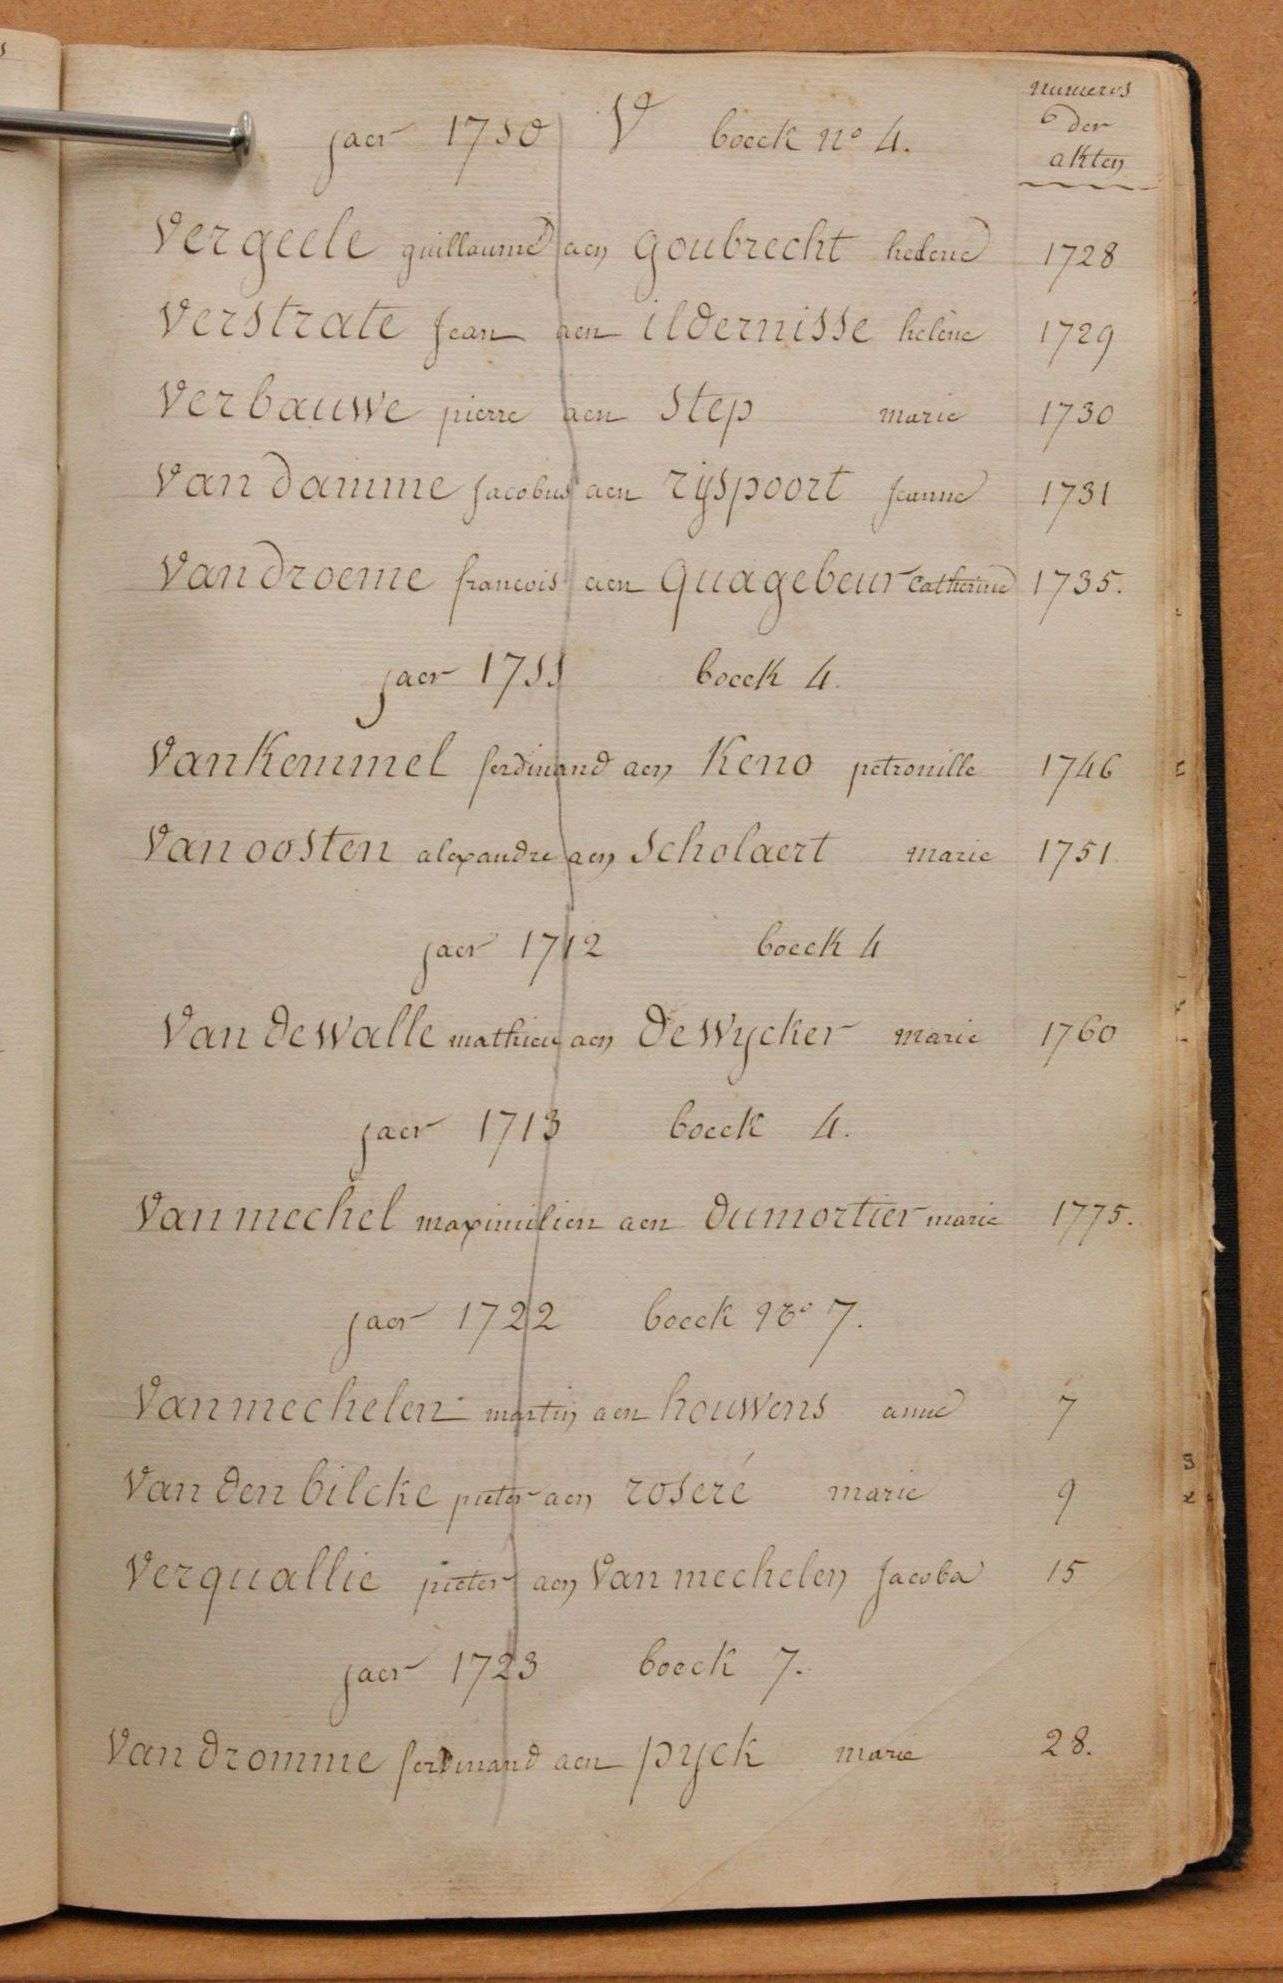 numeros
der
akten
jaer 1710 V boeck nº 4.
Vergeele guillaume aen goubrecht helene 1728
Verstrate Jean aen ildernisse helène 1729
Verbauwe pierre aen Step marie 1730
Van damme Jacobus aen rijspoort Jeanne 1731
Vandroeme francois aen quagebeur Catherine 1735.
jaer 1711 boeck 4.
Vankemmel ferdinand aen Keno petronille 1746
Vanoosten alexandre aen Scholaert marie 1751
jaer 1712 boeck 4
Van de walle mathieu aen de wycker marie 1760
jaer 1713 boeck 4.
Vanmechel maximilien aen dumortier marie 1775.
jaer 1722 boeck Nº 7.
Vanmechelen martin aen houwens anne 7
Van den bilcke pieter aen roseré marie 9
Verquallie pieter aen Van mechelen Jacoba 15
jaer 1723 boeck 7.
Van dromme ferdinand aen pyck marie 28.